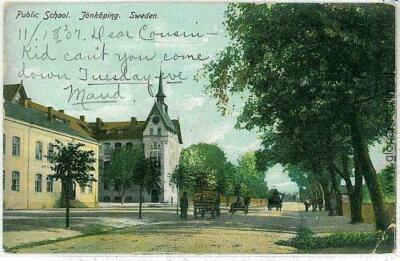 Public School. Jönköping. Sweden.
11/18 07. Dear Cousin-
Kid can't you come
down Tuesday eve
Maud